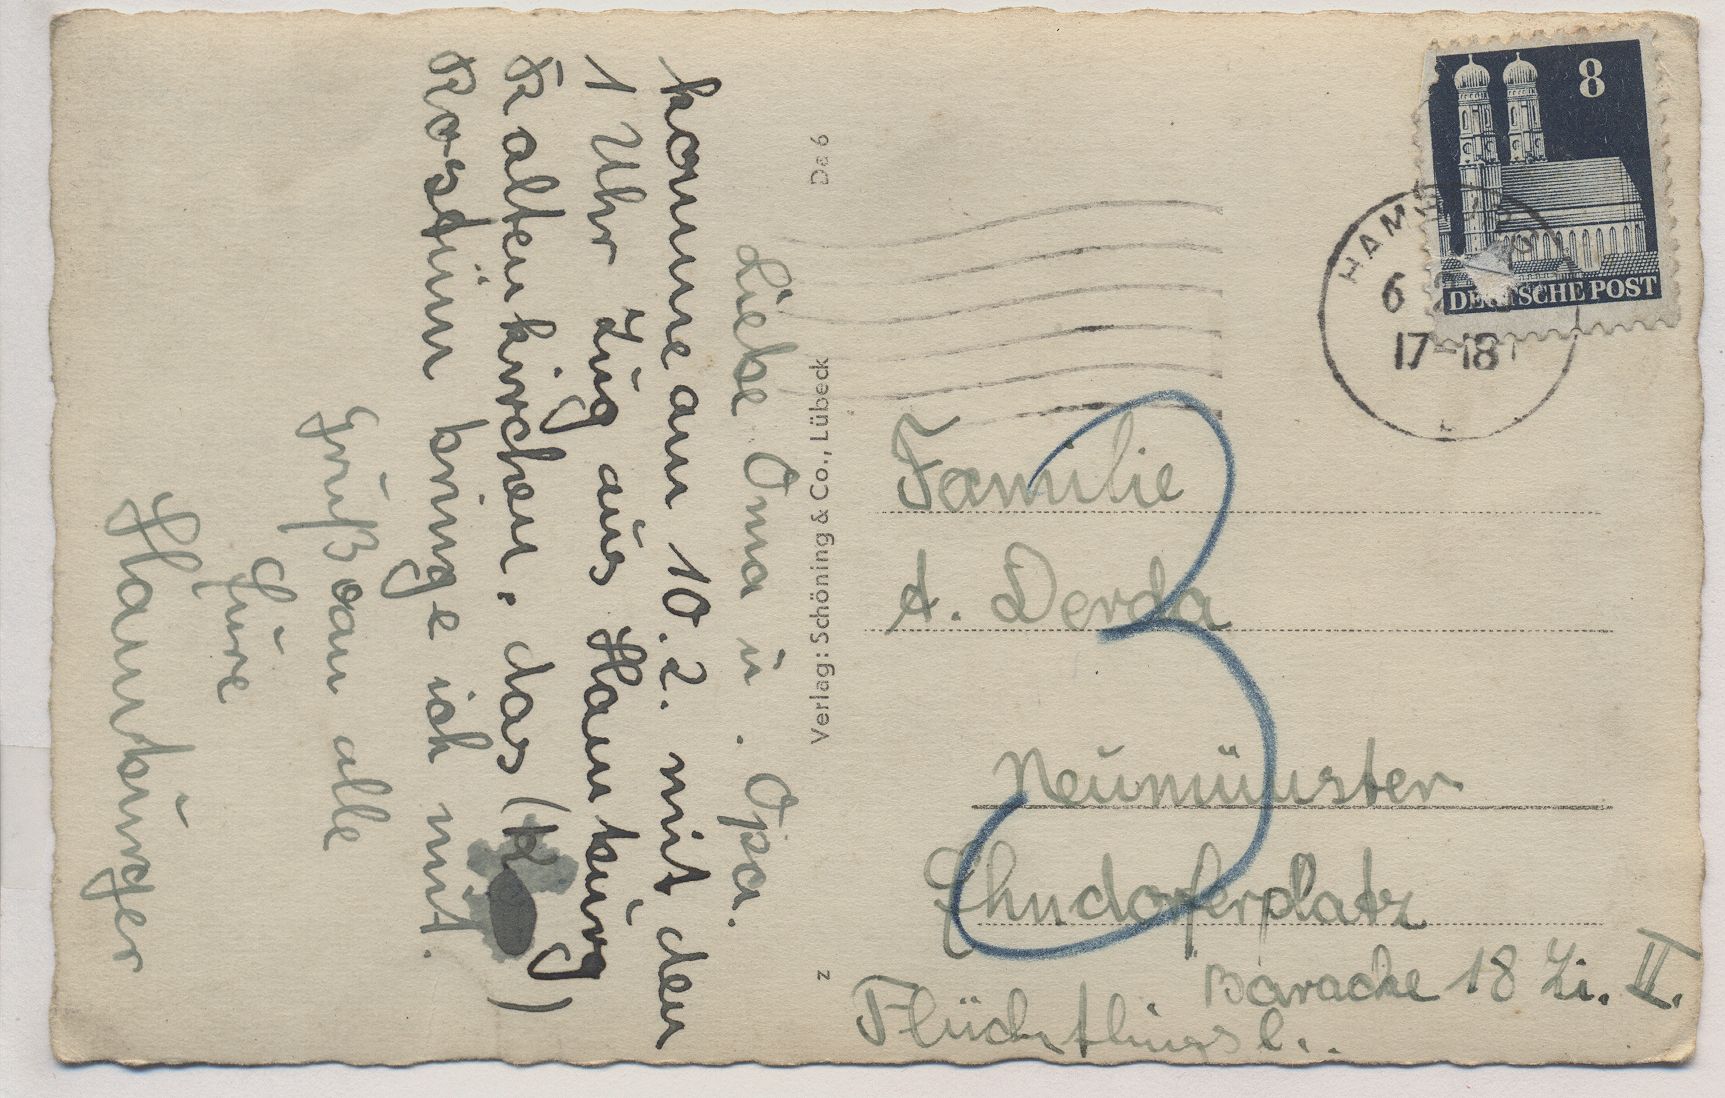 Liebe Oma u. Opa.
komme am 10.2. mit den
1 Uhr Zug aus Hamburg
Kaltenkirchen, das (
Kostüm bringe ich mit.
Gruß an alle
Eure
Hamburger
Verlag: Schöning & Co., Lübeck
De 6
z
8
DEUTSCHE POST
HAMBURG
6 2
17-18
3
Familie
A. Derda
Neumünster
Ehndorferplatz
Baracke 18 Zi. II.
Flüchtlingsl..